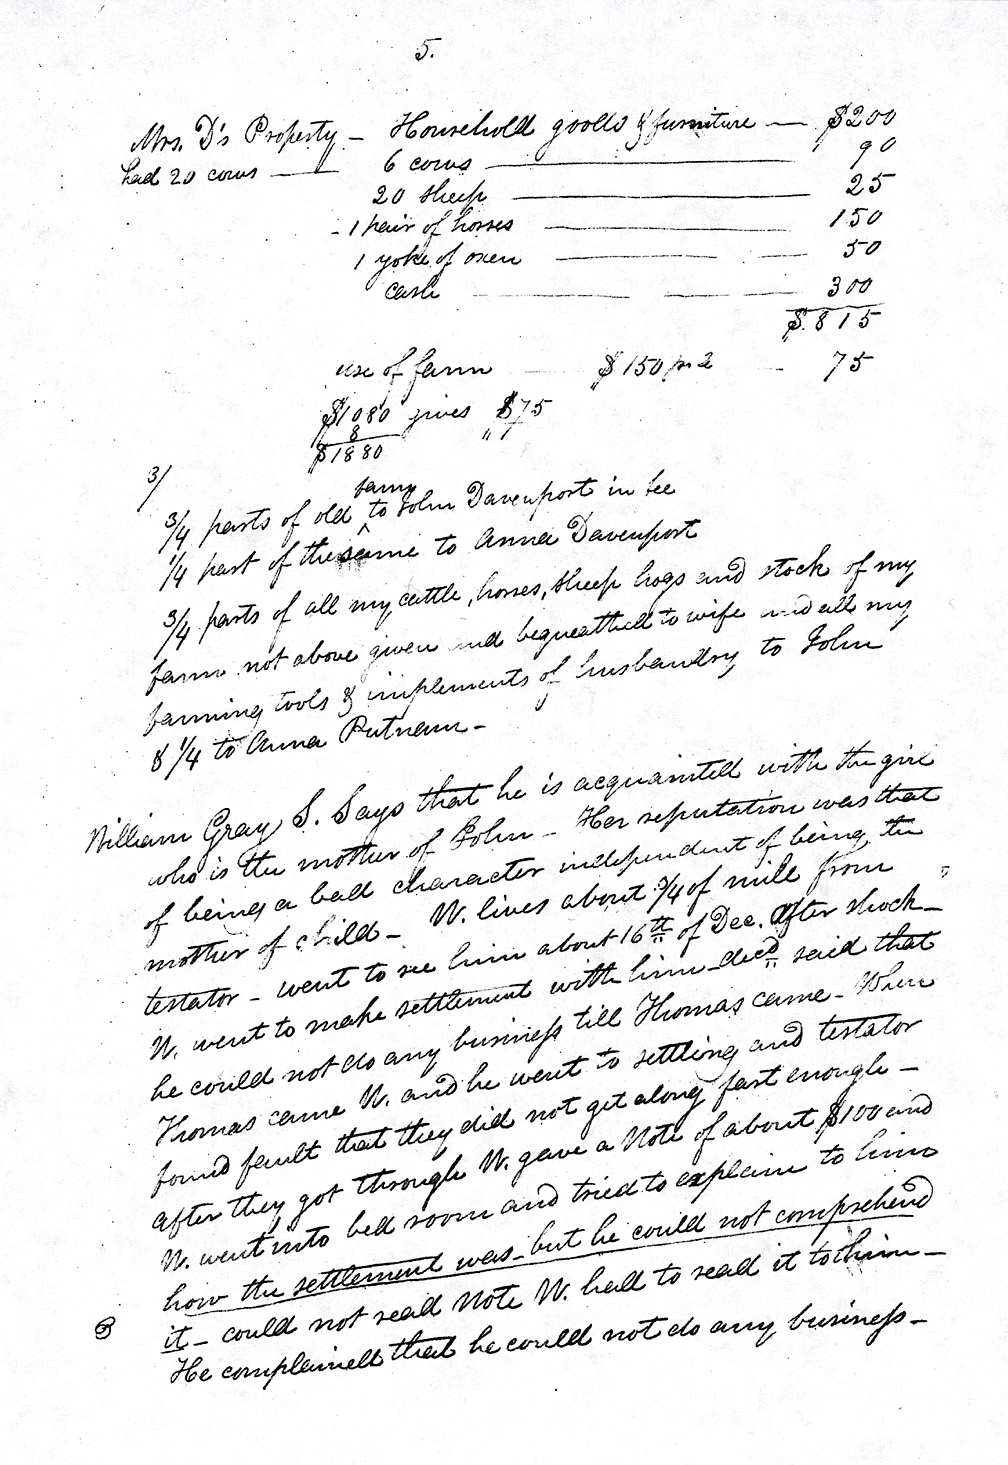 5.
Mrs. D's Property — Household goods & furniture — $200
had 20 cows — 6 cows — 90
20 sheep — 25
- 1 pair of horses — 150
1 yoke of oxen — 50
cash — 300
$815
use of farm $150 75
$1080 gives $75
8
$1880
3/
farm
3/4 parts of old ^ to John Davenport in fee
1/4 part of the same to Anna Davenport
3/4 parts of all my cattle, horses, sheep hogs and stock of my
farm not above given and bequeathed to wife and all my
farming tools & implements of husbandry to John
& 1/4 to Anna Putnam -
William Gray S. Says that he is acquainted with the girl
who is the mother of John - Her reputation was that
of being a bad character independent of being the
mother of child - W. lives about 3/4 of mile from
testator - went to see him about 16th of Dec. After shock -
W. went to make settlement with him - decd said that
he could not do any business till Thomas came - When
Thomas came W. and he went to settling and testator
found fault that they did not get along fast enough -
After they got through W. gave a Note of about $100 and
W. went into bed room and tried to explain to him
how the settlement was - but he could not comprehend
it - could not read Note W. had to read it to him -
He complained that he could not do any business -